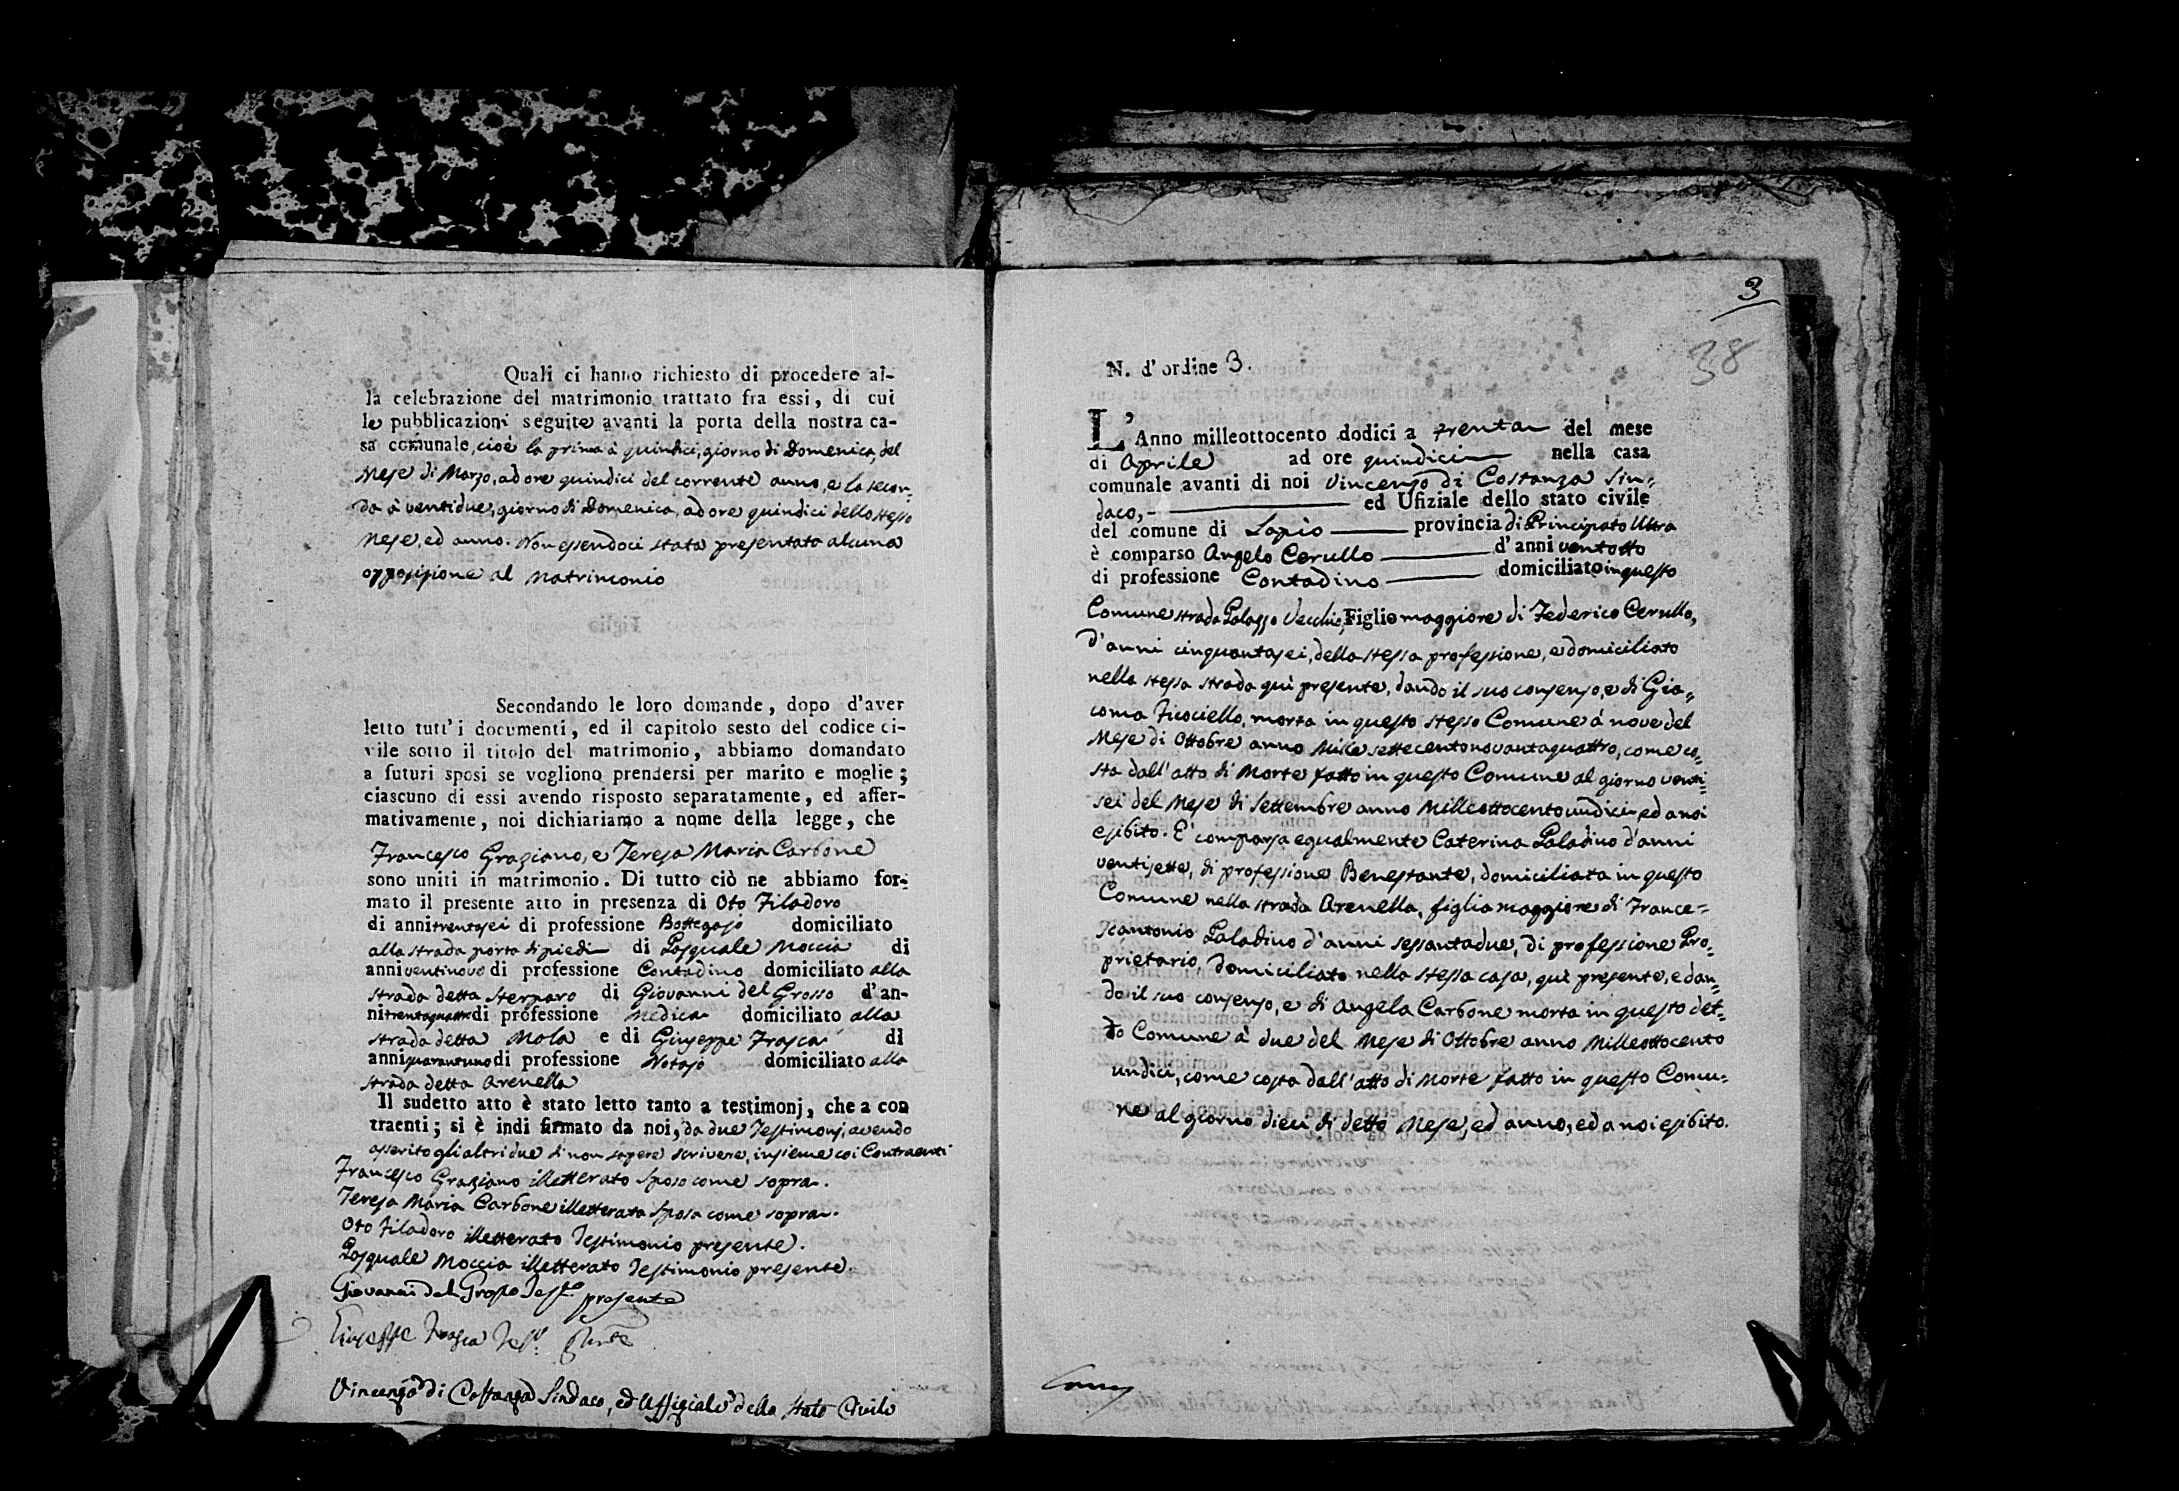 Quali ci hanno richiesto di procedere al-
la celebrazione del matrimonio trattato fra essi, di cui
le pubblicazioni seguite avanti la porta della nostra ca-
sa comunale, cioè la prima à quindici, giorno di Domenica, del
Mese di Marzo, ad ore quindici del corrente anno, e la secon-
da à ventidue, giorno di Domenica, ad ore quindici dello stesso
Mese, ed anno. Non essendoci stata presentata alcuna
opposizione al Matrimonio
Secondando le loro domande, dopo d'aver
letto tutt'i documenti, ed il capitolo sesto del codice ci-
vile sotto il titolo del matrimonio, abbiamo domandato
a futuri sposi se vogliono prendersi per marito e moglie;
ciascuno di essi avendo risposto separatamente, ed affer-
mativamente, noi dichiariamo a nome della legge, che
Francesco Graziano, e Teresa Maria Carbone
sono uniti in matrimonio. Di tutto ciò ne abbiamo for-
mato il presente atto in presenza di Oto Filadoro
di anni trentasei di professione Bottegajo domiciliato
alla strada porta di piedi di Pasquale Moccia di
anni ventinove di professione Contadino domiciliato alla
strada detta Sterparo di Giovanni del Grosso d'an-
ni trentaquattro di professione Medica domiciliato alla
strada detta Mola e di Giuseppe Frasca di
anni quarantuno di professione Notajo domiciliato alla
strada detta Arenella
Il sudetto atto è stato letto tanto a testimonj, che a con
traenti; si è indi firmato da noi, da due Testimonj, avendo
asserito gli altri due di non sapere scrivere, insieme coi Contraenti
Francesco Graziano illetterato Sposo come sopra.
Teresa Maria Carbone illetterata Sposa come sopra.
Oto Filadoro illetterato Testimonio presente.
Pasquale Moccia illetterato Testimonio presente.
Giovanni del Grosso Testo presente
Giuseppe Frasca
Vincenzo di Costanza Sindaco, ed Uffiziale dello Stato Civile
3
38
N. d'ordine 3.
L'Anno milleottocento dodici a trenta del mese
di Aprile ad ore quindici nella casa
comunale avanti di noi Vincenzo di Costanza Sin-
daco, ed Ufiziale dello stato civile
del comune di Lapio provincia di Principato Ultra
è comparso Angelo Cerullo d'anni ventotto
di professione Contadino domiciliato in questo
Comune strada Palazzo Vecchio, Figlio maggiore di Federico Cerullo,
d'anni cinquantasei, della stessa professione, e domiciliato
nella stessa strada quì presente, dando il suo consenso, e di Gia-
coma Ficociello, morta in questo stesso Comune à nove del
Mese di Ottobre anno Mille settecento novantaquattro, come co-
sta dall'atto di Morte fatto in questo Comune al giorno venti-
sei del Mese di Settembre anno Milleottocentoundici, ed a noi
esibito. E' comparsa egualmente Caterina Paladino d'anni
ventisette, di professione Benestante, domiciliata in questo
Comune nella strada Arenella, figlia maggiore di France-
scantonio Paladino d'anni sessantadue, di professione Pro-
prietario, domiciliato nella stessa casa, quì presente, e dan-
do il suo consenso, e di Angela Carbone morta in questo det-
to Comune à due del Mese di Ottobre anno Milleottocento
undici, come costa dall'atto di Morte fatto in questo Comu-
ne al giorno dieci di detto Mese, ed anno, ed a noi esibito.